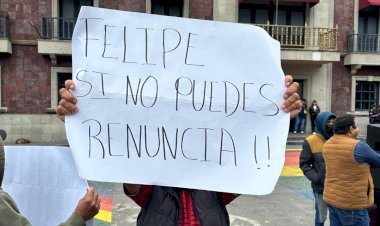 FELIPE
SI NO PUEDES
RENUNCIA !!